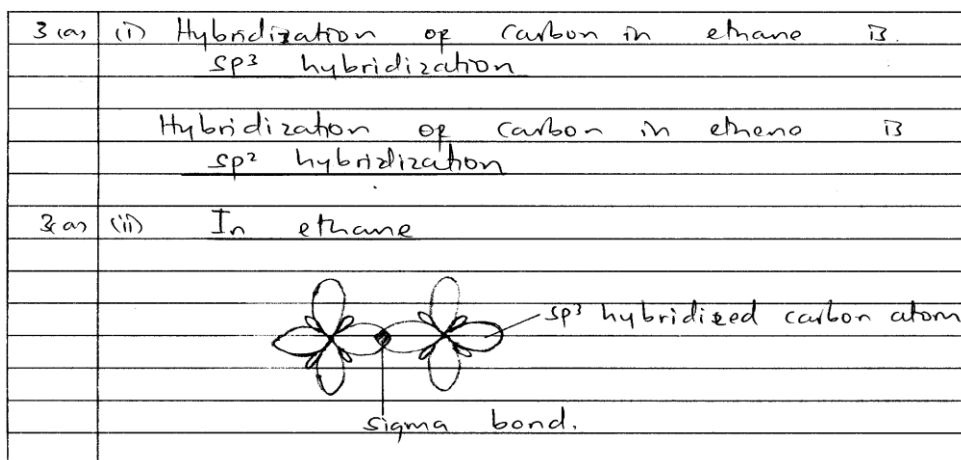 3(a) (i) Hybridization of carbon in ethane is.
sp3 hybridization
Hybridization of carbon in ethene is
sp2 hybridization
3(a) (ii) In ethane
sp3 hybridized carbon atom
sigma bond.